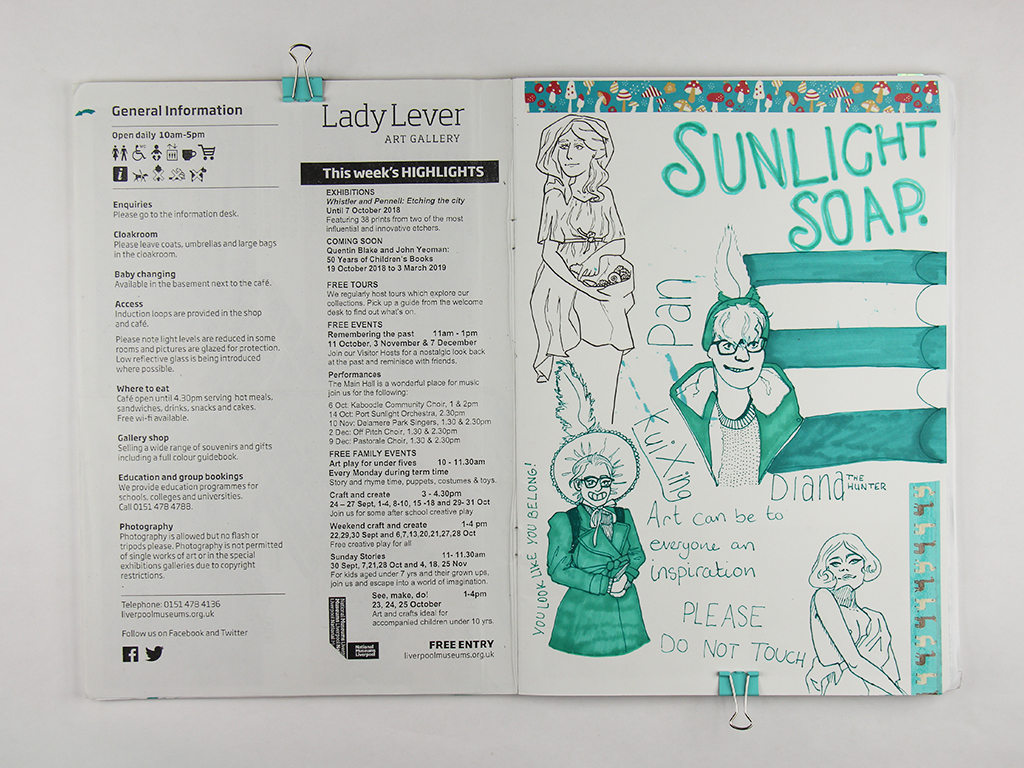 General Information
Open daily 10am-5pm
WC
i
Enquiries
Please go to the information desk.
Cloakroom
Please leave coats, umbrellas and large bags
in the cloakroom.
Baby changing
Available in the basement next to the café.
Access
Induction loops are provided in the shop
and café.
Please note light levels are reduced in some
rooms and pictures are glazed for protection.
Low reflective glass is being introduced
where possible.
Where to eat
Café open until 4.30pm serving hot meals,
sandwiches, drinks, snacks and cakes.
Free wi-fi available.
Gallery shop
Selling a wide range of souvenirs and gifts
including a full colour guidebook.
Education and group bookings
We provide education programmes for
schools, colleges and universities.
Call 0151 478 4788.
Photography
Photography is allowed but no flash or
tripods please. Photography is not permitted
of single works of art or in the special
exhibitions galleries due to copyright
restrictions.
Telephone: 0151 478 4136
liverpoolmuseums.org.uk
Follow us on Facebook and Twitter
Lady Lever
ART GALLERY
This week's HIGHLIGHTS
EXHIBITIONS
Whistler and Pennell: Etching the city
Until 7 October 2018
Featuring 38 prints from two of the most
influential and innovative etchers.
COMING SOON
Quentin Blake and John Yeoman:
50 Years of Children's Books
19 October 2018 to 3 March 2019
FREE TOURS
We regularly host tours which explore our
collections. Pick up a guide from the welcome
desk to find out what's on.
FREE EVENTS
Remembering the past 11am - 1pm
11 October, 3 November & 7 December
Join our Visitor Hosts for a nostalgic look back
at the past and reminisce with friends.
Performances
The Main Hall is a wonderful place for music
join us for the following:
6 Oct: Kaboodle Community Choir, 1 & 2pm
14 Oct: Port Sunlight Orchestra, 2.30pm
10 Nov: Delamere Park Singers, 1.30 & 2.30pm
2 Dec: Off Pitch Choir, 1.30 & 2.30pm
9 Dec: Pastorale Choir, 1.30 & 2.30pm
FREE FAMILY EVENTS
Art play for under fives 10 - 11.30am
Every Monday during term time
Story and rhyme time, puppets, costumes & toys.
Craft and create 3 - 4.30pm
24 – 27 Sept, 1-4, 8-10, 15 -18 and 29- 31 Oct
Join us for some after school creative play
Weekend craft and create 1-4 pm
22,29,30 Sept and 6,7,13,20,21,27,28 Oct
Free creative play for all
Sunday Stories 11- 11.30am
30 Sept, 7,21,28 Oct and 4, 18, 25 Nov
For kids aged under 7 yrs and their grown ups,
join us and escape into a world of imagination.
See, make, do! 1-4pm
23, 24, 25 October
Art and crafts ideal for
accompanied children under 10 yrs.
National
Museums
Liverpool
FREE ENTRY
liverpoolmuseums.org.uk
SUNLIGHT
SOAP.
Pan
YOU LOOK LIKE YOU BELONG!
Diana THE
HUNTER
Art can be to
everyone an
inspiration
PLEASE
DO NOT TOUCH